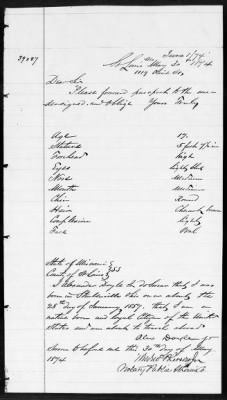 39007
June 1/74
St Louis May 30 1874
1119 Olive St
Dear Sir
Please forward passport to the un-
dersigned, and oblige Yours Truly
Age 17.
Stature 5 feet 7 in
Forehead high
Eyes light blue
Nose Medium
Mouth Medium
Chin Round
Hair brown
Complexion light
Face Oval
State of Missouri
County of St Louis SS
I Alexander Doyle do Swear that I was
born in Steubenville Ohio on or about the
28th of January 1857, that I am a
native born and loyal Citizen of the United
States and am about to travel abroad
Alex Doyle
Sworn to before me this 30th day of May
1874
Notary Public